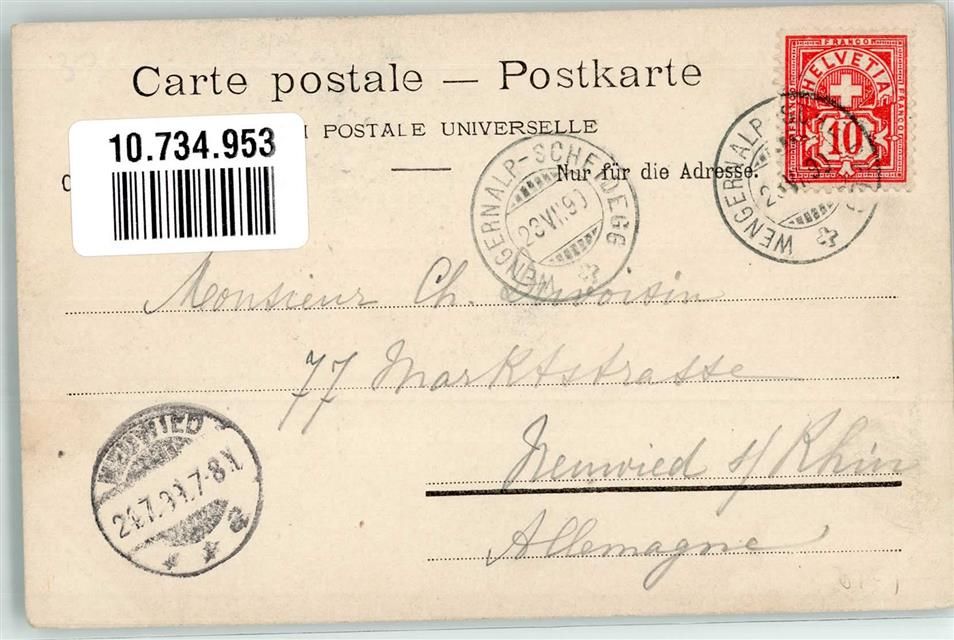 Carte postale — Postkarte
POSTALE UNIVERSELLE
Nur für die Adresse.
10.734.953
FRANCO
HELVETIA
FRANCO
FRANCO
10
WENGERNALP-SCHEIDEGG
WENGERNALP-
Monsieur Ch.
77 Marktstrasse
Neuwied s/Rhin
Allemagne
NEUWIED
7-8
a